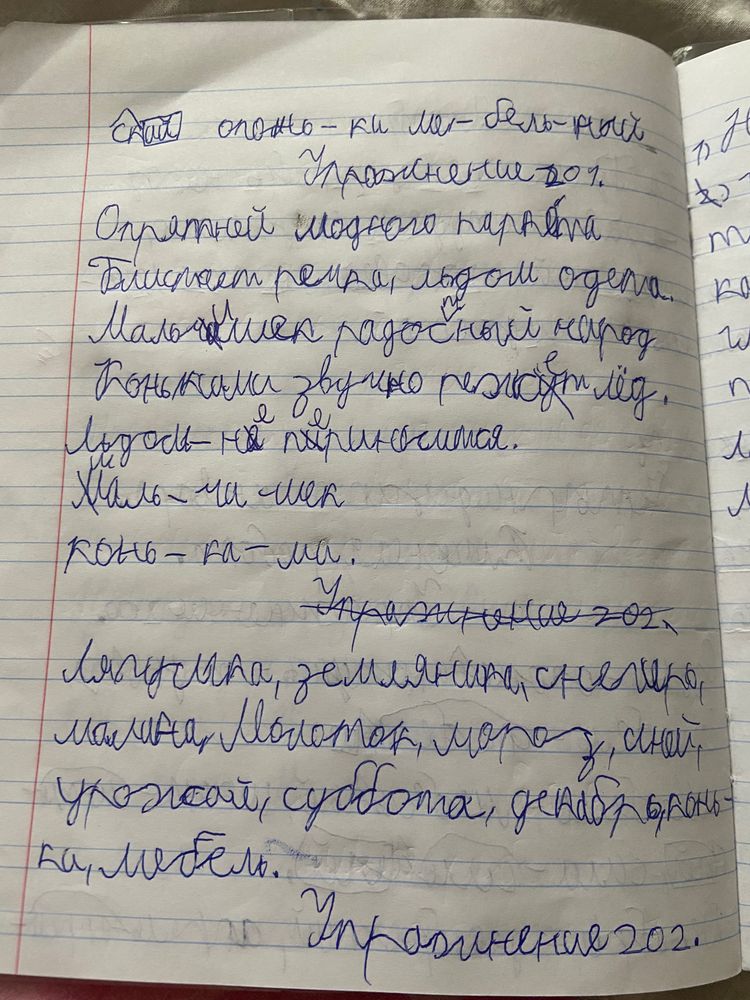 ский опонь-ки ме-бель-ный
Упражнение 201.
Опрятней модного паркета
Блистает речка, льдом одета.
Мальчишек радостный народ
Коньками звучно режет лёд.
льдом-не переносится.
Маль-чи-шек
конь-ка-ми.
Упражнение 202.
Лягушка, земляника, снегирь,
малина, Молоток, мороз, иней,
урожай, суббота, декабрь, конь-
ки, мебель.
Упражинение 202.
1)
2)